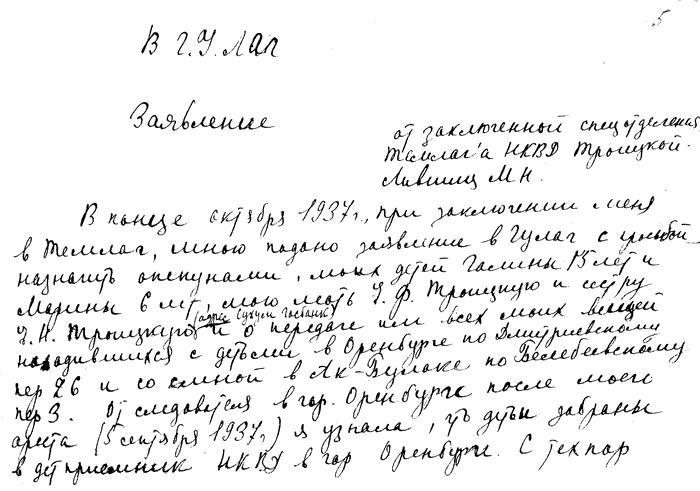 5
В Г.У.Лаг
Заявление
от заключенной спецотделения
Темлаг'а НКВД Троицкой-
Лившиц М Н.
В конце октября 1937 г., при заключении меня
в Темлаг, мною подано заявление в Гулаг с просьбой
назначить опекунами, моих детей Галины 15 лет и
Марины 6 лет, мою мать У. Ф. Троицкую и сестру
(адрес Сухум госбанк)
У. Н. Троицкую и о передаче им всех моих вещей
находившихся с детьми в Оренбурге по Дмитриевскому
пер 26 и со мной в Ак-Булаке по Белебеевскому
пер 3. От следователя в гор. Оренбурге после моего
ареста (5 сентября 1937 г.) я узнала, что дети забраны
в детприемник НКВД в гор Оренбурге. С тех пор